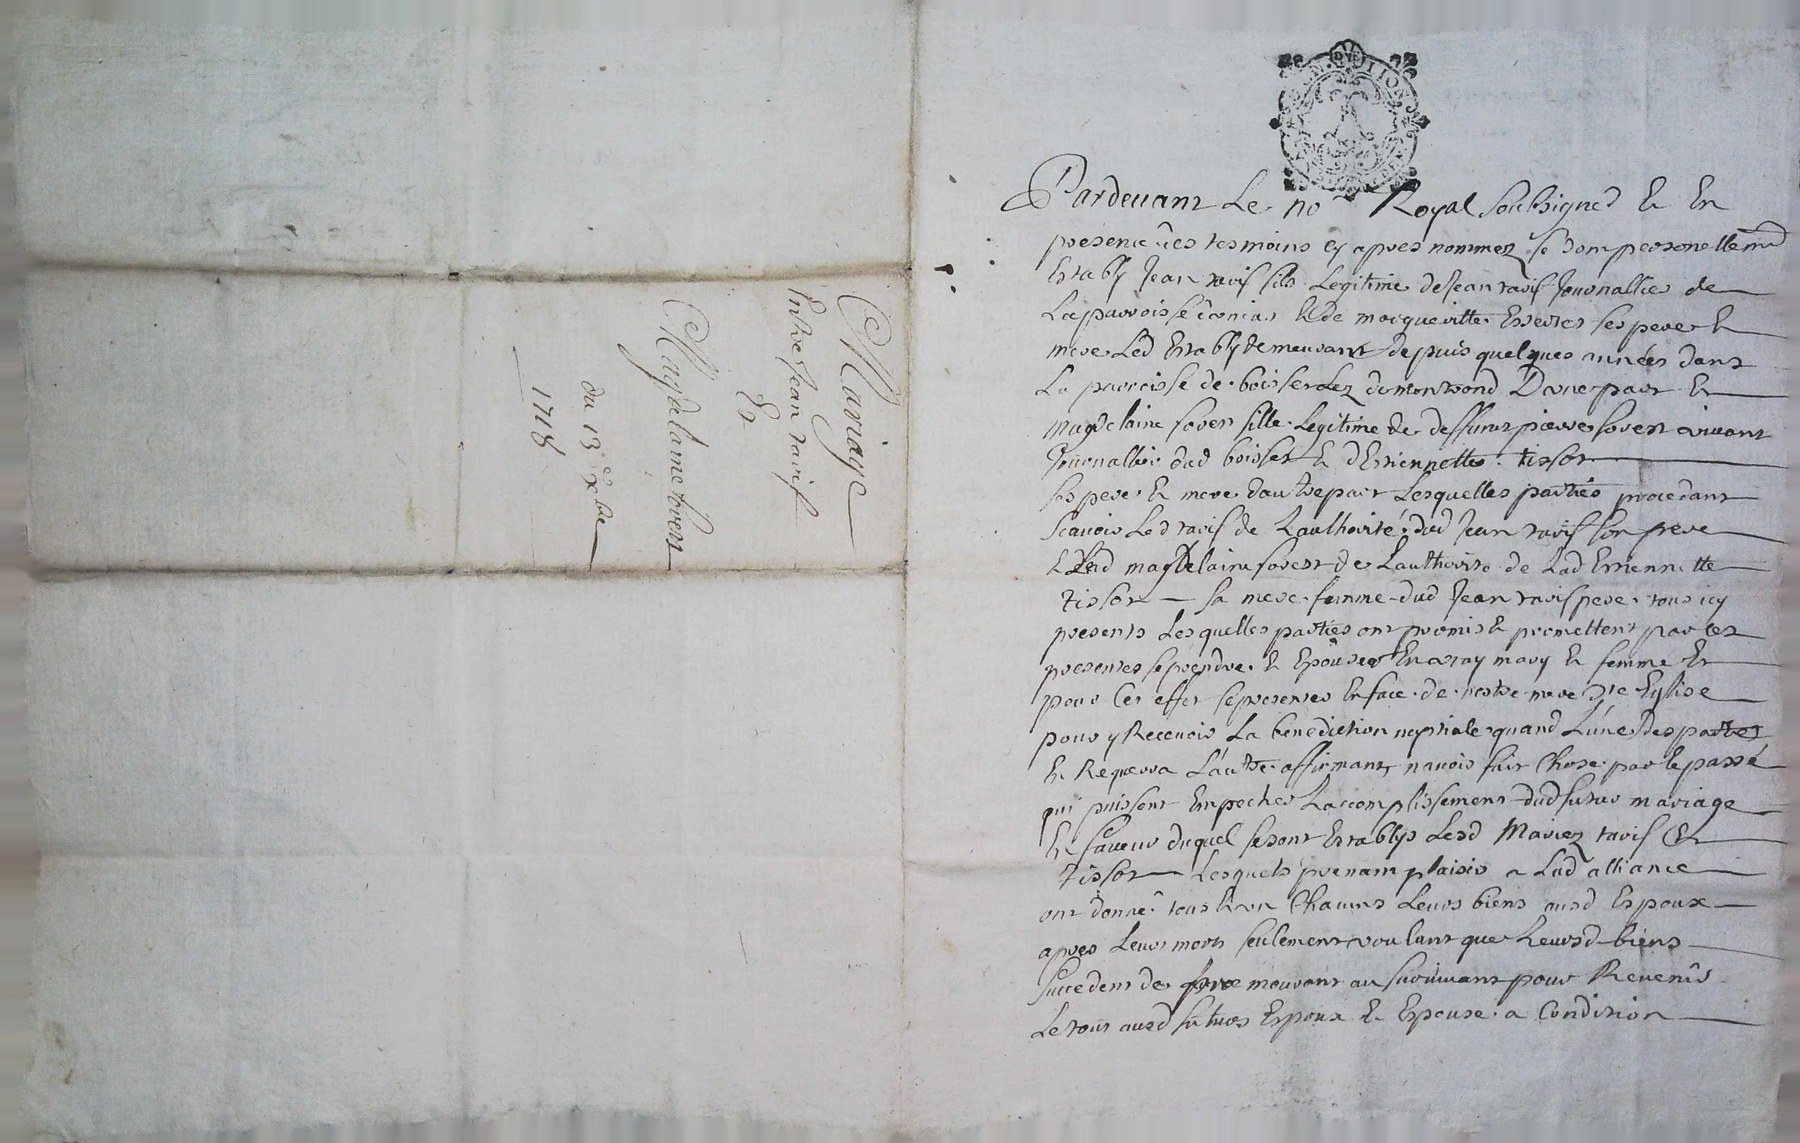 Mariage
Entre Jean ravif
Et
Magdelaine forest
du 13e xbre
1718
Pardevant Le no.re Royal soubsigned & En
presence des tesmoins cy apres nommez se sont personellement
Estably Jean ravif fils Legitime de Jean ravif Journallier de
La parroisse & de marqueritte ses pere &
mere Led Estably demeurant depuis quelques années dans
La parroisse de boisset Lez de montrond D'une part &
magdelaine forest fille Legitime de deffunt pierre forest vivant
Journallier dud boisset & d'Estiennette tissot
ses pere & mere d'autre part Lesquelles parties procedant
scavoir Led ravif de L'authorité dud Jean ravif son pere
& Lad magdelaine forest de L'authorité de Lad Estiennette
tissot sa mere femme dud Jean ravif pere tous icy
presents Lesquelles parties ont promis & promettent par ces
presentes se prendre & Epouser En vray mary & femme Et
pour Cet effet se presenter En face de nostre mere Ste Eglise
pour y Recevoir La benediction nuptiale quand L'une Des parties
En Requerra L'autre affirmant n'avoir fait Chose par le passé
qui puissent Empecher L'accomplissement dud futur mariage
En faveur duquel se sont Establys Lesd Mariez ravif Et
tissot Lesquels prenant plaisir a Lad alliance
ont donné tous & un Chacuns Leurs biens ausd Espoux
apres Leurs morts seulement voulant que Leursd biens
succedent de mourant au survivant pour Revenir
Le tout ausd futurs Espoux & Espouse a Condition